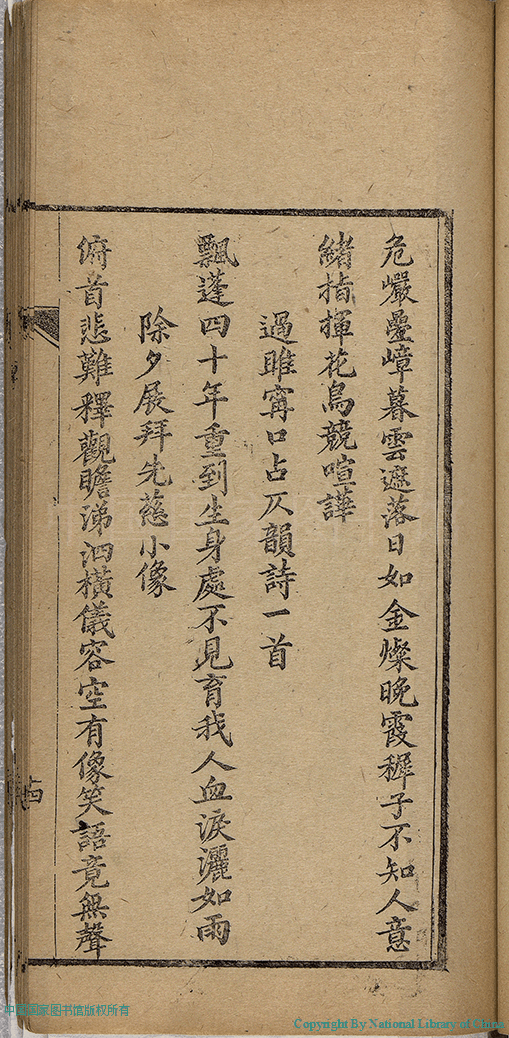 危巖疊嶂暮雲遮落日如金燦晚霞穉子不知人意
緒指揮花鳥競喧譁
過睢寧口占仄韻詩一首
飄蓬四十年重到生身處不見育我人血淚灑如雨
除夕展拜先慈小像
俯首悲難釋觀瞻涕泗橫儀容空有像笑語竟無聲
十四
中国国家图书馆版权所有
Copyright By National Library of China